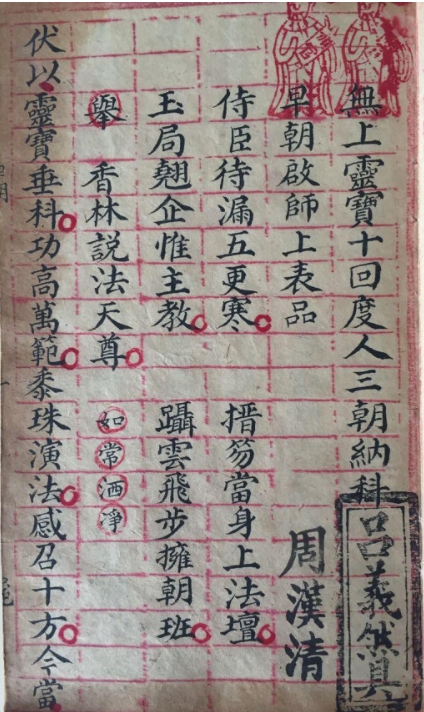 無上靈寶十回度人三朝納科
呂義然具
早朝啟師上表品
周漢清
侍臣待漏五更寒 搢笏當身上法壇
玉局翹企惟主教 躡雲飛步擁朝班
舉 香林説法天尊 如常洒淨
伏以靈寶垂科功高萬範黍珠演法感召十方今當